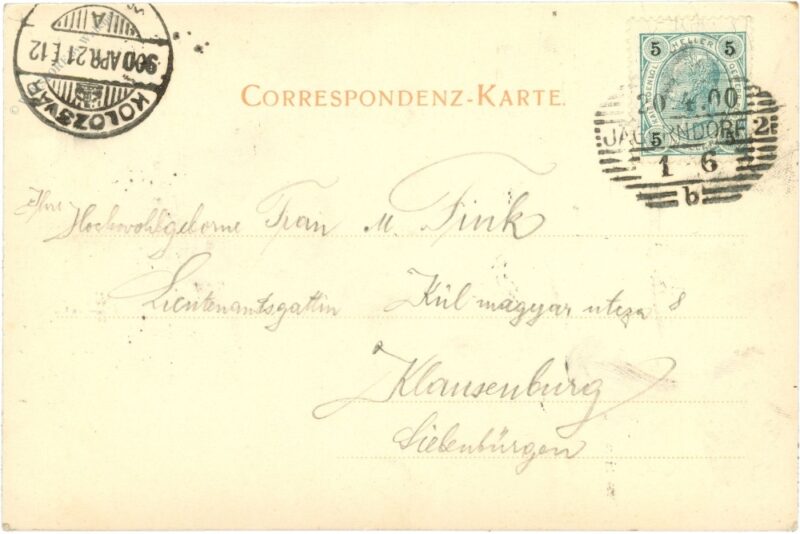 KOLOZSVÁR
900 APR. 21 E.12
A
5 HELLER 5
5 5
20 4 00
JÄGERNDORF 2
1 6
b
CORRESPONDENZ-KARTE.
Ihre
Hochwohlgeborne Frau M. Fink
Lieutenantsgattin Kül magyar utcza 8
Klausenburg
Siebenbürgen